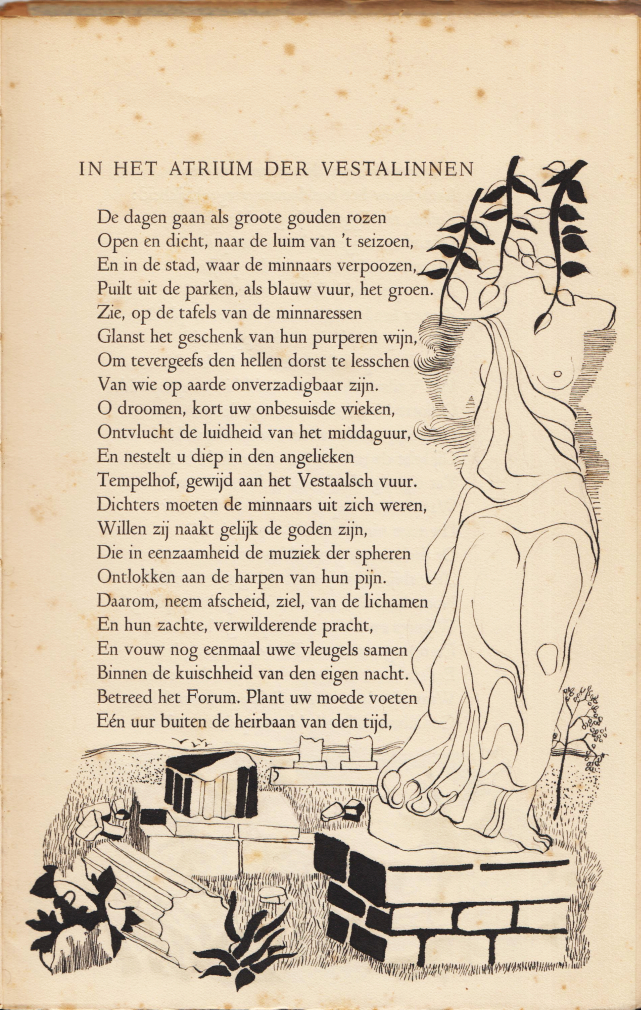 IN HET ATRIUM DER VESTALINNEN
De dagen gaan als groote gouden rozen
Open en dicht, naar de luim van 't seizoen,
En in de stad, waar de minnaars verpoozen,
Puilt uit de parken, als blauw vuur, het groen.
Zie, op de tafels van de minnaressen
Glanst het geschenk van hun purperen wijn,
Om tevergeefs den hellen dorst te lesschen
Van wie op aarde onverzadigbaar zijn.
O droomen, kort uw onbesuisde wieken,
Ontvlucht de luidheid van het middaguur,
En nestelt u diep in den angelieken
Tempelhof, gewijd aan het Vestaalsch vuur.
Dichters moeten de minnaars uit zich weren,
Willen zij naakt gelijk de goden zijn,
Die in eenzaamheid de muziek der spheren
Ontlokken aan de harpen van hun pijn.
Daarom, neem afscheid, ziel, van de lichamen
En hun zachte, verwilderende pracht,
En vouw nog eenmaal uwe vleugels samen
Binnen de kuischheid van den eigen nacht.
Betreed het Forum. Plant uw moede voeten
Eén uur buiten de heirbaan van den tijd,